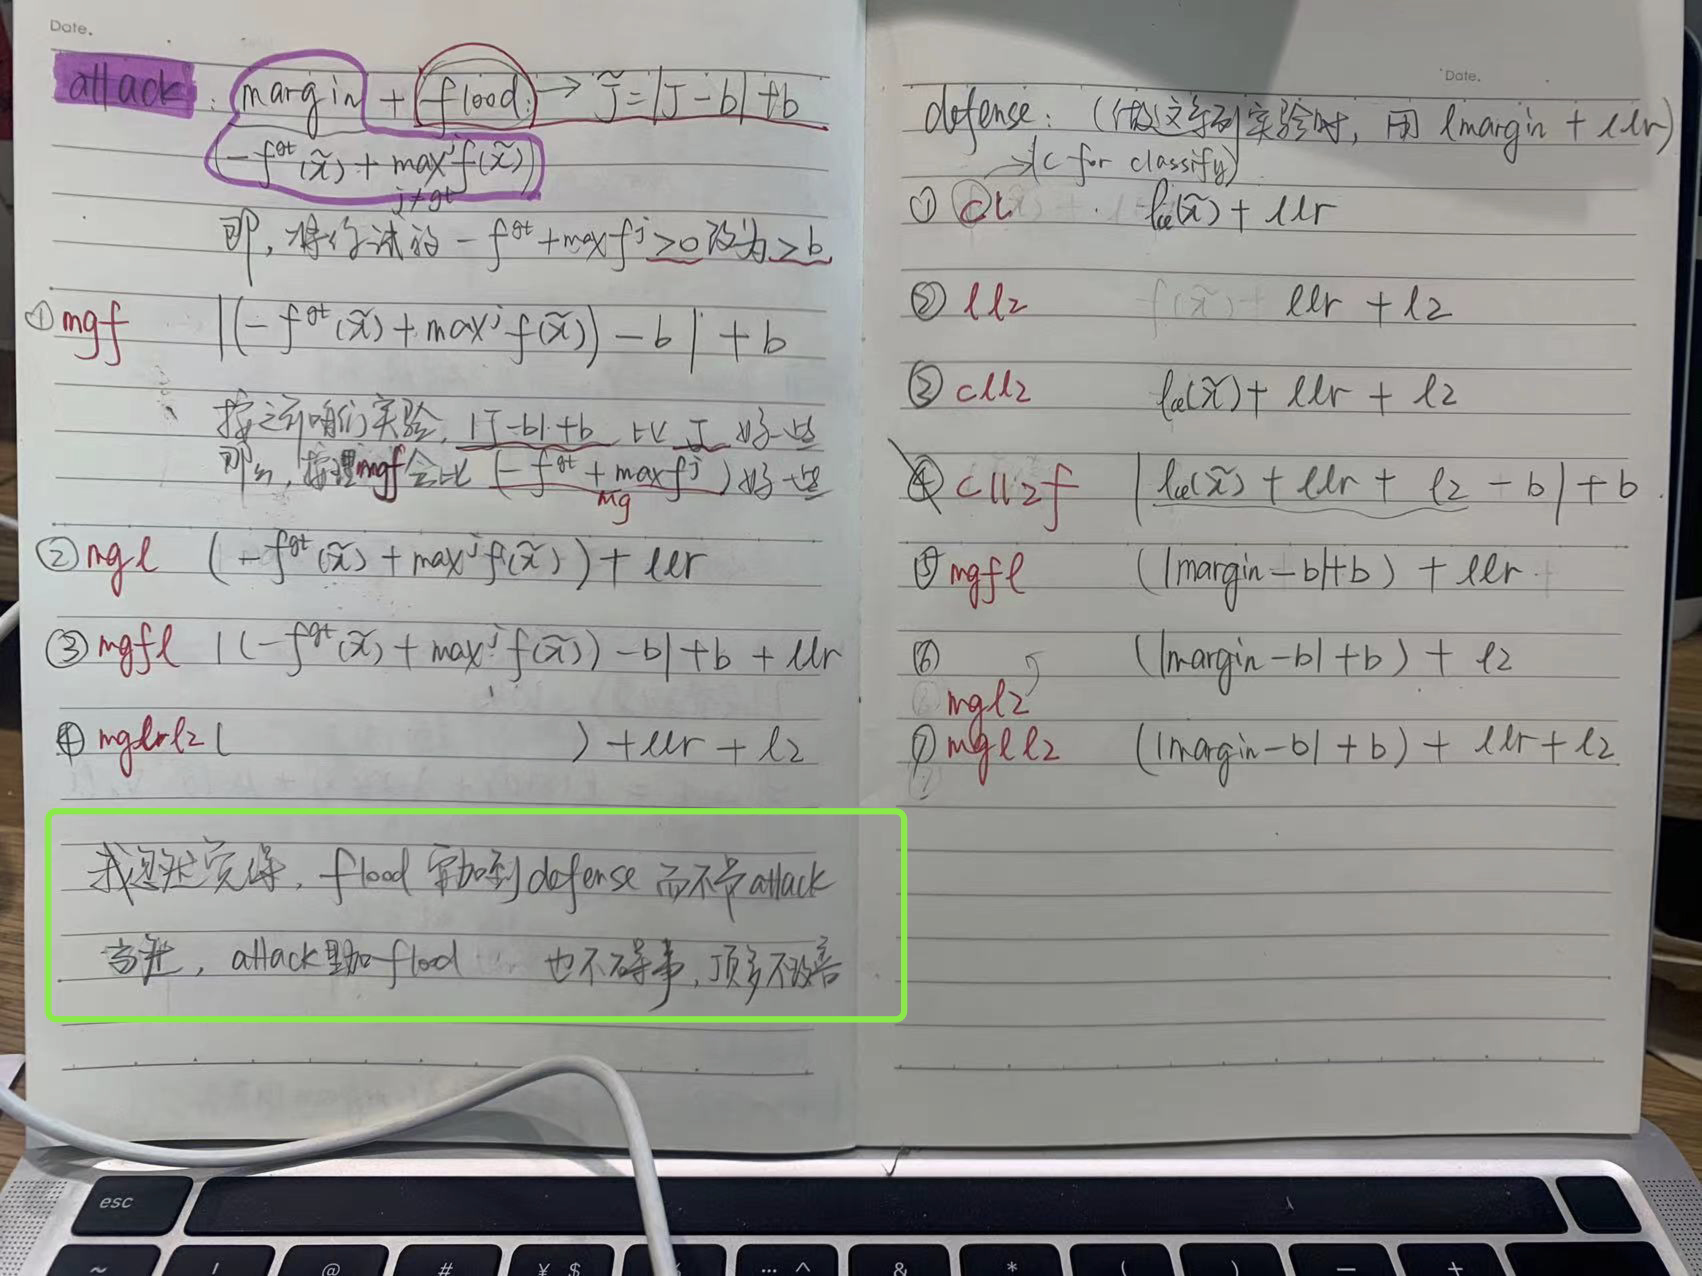 Date.
attack : margin + flood → J̃ = |J - b| + b
(-f^gt(x̃) + max^j f(x̃))
j≠gt
即, 将你试的 -f^gt + max f^j >0 改为 >b
① mgf |(-f^gt(x̃) + max^j f(x̃)) - b| + b
按之前咱们实验, |J-b|+b 比 J 好一些
那么, 按理mgf会比 (-f^gt + max f^j) 好一些
mg
② mgl (-f^gt(x̃) + max^j f(x̃)) + llr
③ mgfl |(-f^gt(x̃) + max^j f(x̃)) - b| + b + llr
④ mglrl2 ( ) + llr + l2
我忽然觉得, flood 要加到 defense 而不是 attack
当然, attack里加flood 也不碍事, 顶多不改善
Date.
defense: (做这系列实验时, 用 lmargin + llr)
→(c for classify)
① cl lce(x̃) + llr
② ll2 f(x̃) + llr + l2
③ cll2 lce(x̃) + llr + l2
④ cll2f |lce(x̃) + llr + l2 - b| + b
⑤ mgfl (|margin - b|+b) + llr
⑥ (|margin - b| + b) + l2
mgl2
⑦ mgll2 (|margin - b| + b) + llr + l2
esc
~ ! @ # ¥ $ % … ^ & * ( ) — +